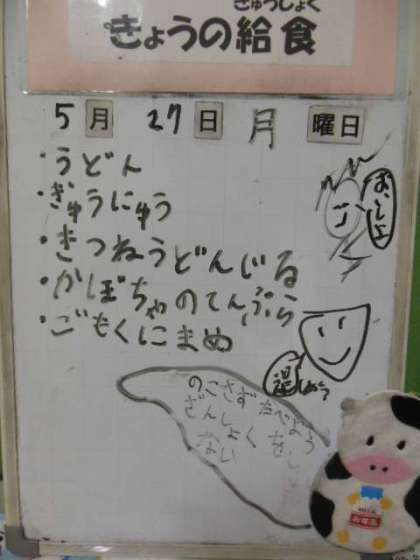 きゅうしょく
きょうの給食
5月 27日 月 曜日
・うどん
・ぎゅうにゅう
・きつねうどんじる
・かぼちゃのてんぷら
・ごもくにまめ
のこさずたべよう
ざんしょくをし
ない
MILK